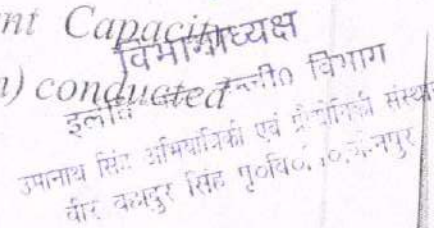 nt Capacity
विभागाध्यक्ष
n) conducted
विभाग
उमानाथ सिंह अभियांत्रिकी एवं प्रौद्योगिकी संस्थान
वीर बहादुर सिंह पू०वि०